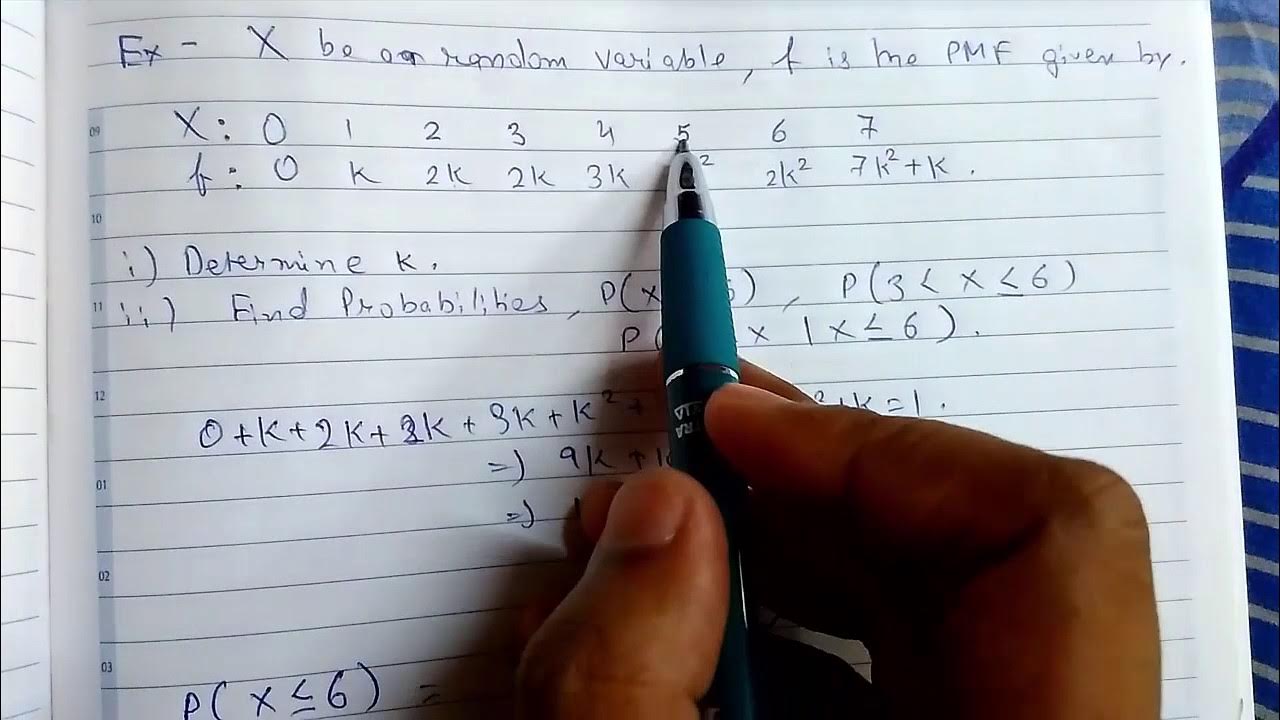 Ex - X be a random variable, f is the PMF given by.
09
X: 0 1 2 3 4 5 6 7
f: 0 k 2k 2k 3k ² 2k² 7k²+k.
10
i) Determine k.
11
ii) Find Probabilities, P(x 6), P(3 < x ≤ 6)
P( x | x ≤ 6).
12
0+k+2k+2k+3k+k²+ ²+k=1.
=) 9k+
01
=)
02
03
P(x≤6) =